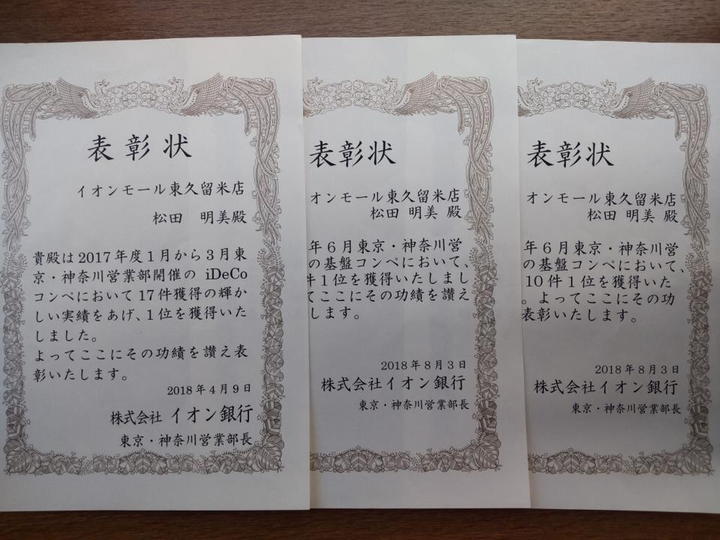 表彰状
イオンモール東久留米店
松田 明美殿
貴殿は2017年度1月から3月東
京・神奈川営業部開催の iDeCo
コンペにおいて17件獲得の輝か
しい実績をあげ、1位を獲得いた
しました。
よってここにその功績を讃え表
彰いたします。
2018年4月9日
株式会社 イオン銀行
東京・神奈川営業部長
表彰状
オンモール東久留米店
松田 明美 殿
年6月東京・神奈川営
の基盤コンペにおいて、
件1位を獲得いたしまし
てここにその功績を讃え
します。
2018年8月3日
株式会社イオン銀行
東京・神奈川営業部長
表彰状
オンモール東久留米店
松田 明美 殿
年6月東京・神奈川営
の基盤コンペにおいて、
10件1位を獲得いた
。よってここにその功
表彰いたします。
2018年8月3日
株式会社イオン銀行
東京・神奈川営業部長